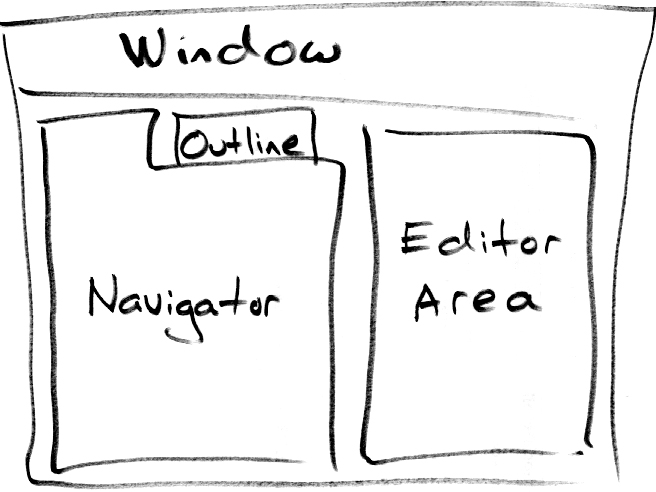 Window
Outline
Navigator
Editor
Area